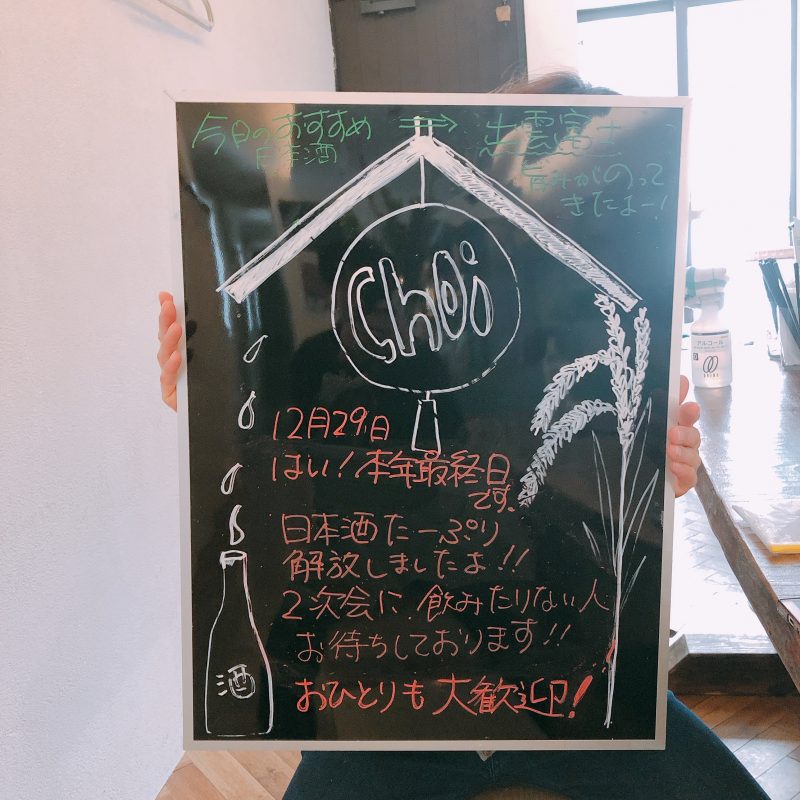 今日のおすすめ
日本酒
⇒ 出雲富士
旨みがのって
きたよー!
Choi
12月29日
はい!本年最終日
です。
日本酒たーぷり
解放しましたよ!!
2次会に、飲みたりない人
お待ちしております!!
おひとりも大歓迎!
酒
アルコール